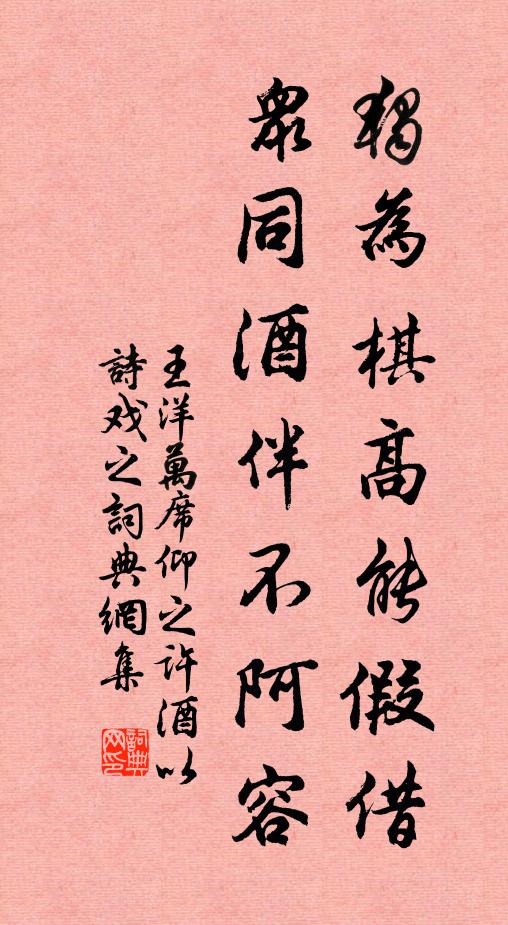 獨為棋高能假借
眾同酒伴不阿容
王洋萬席仰之許酒以
詩戏之詞典網集
詞典网印